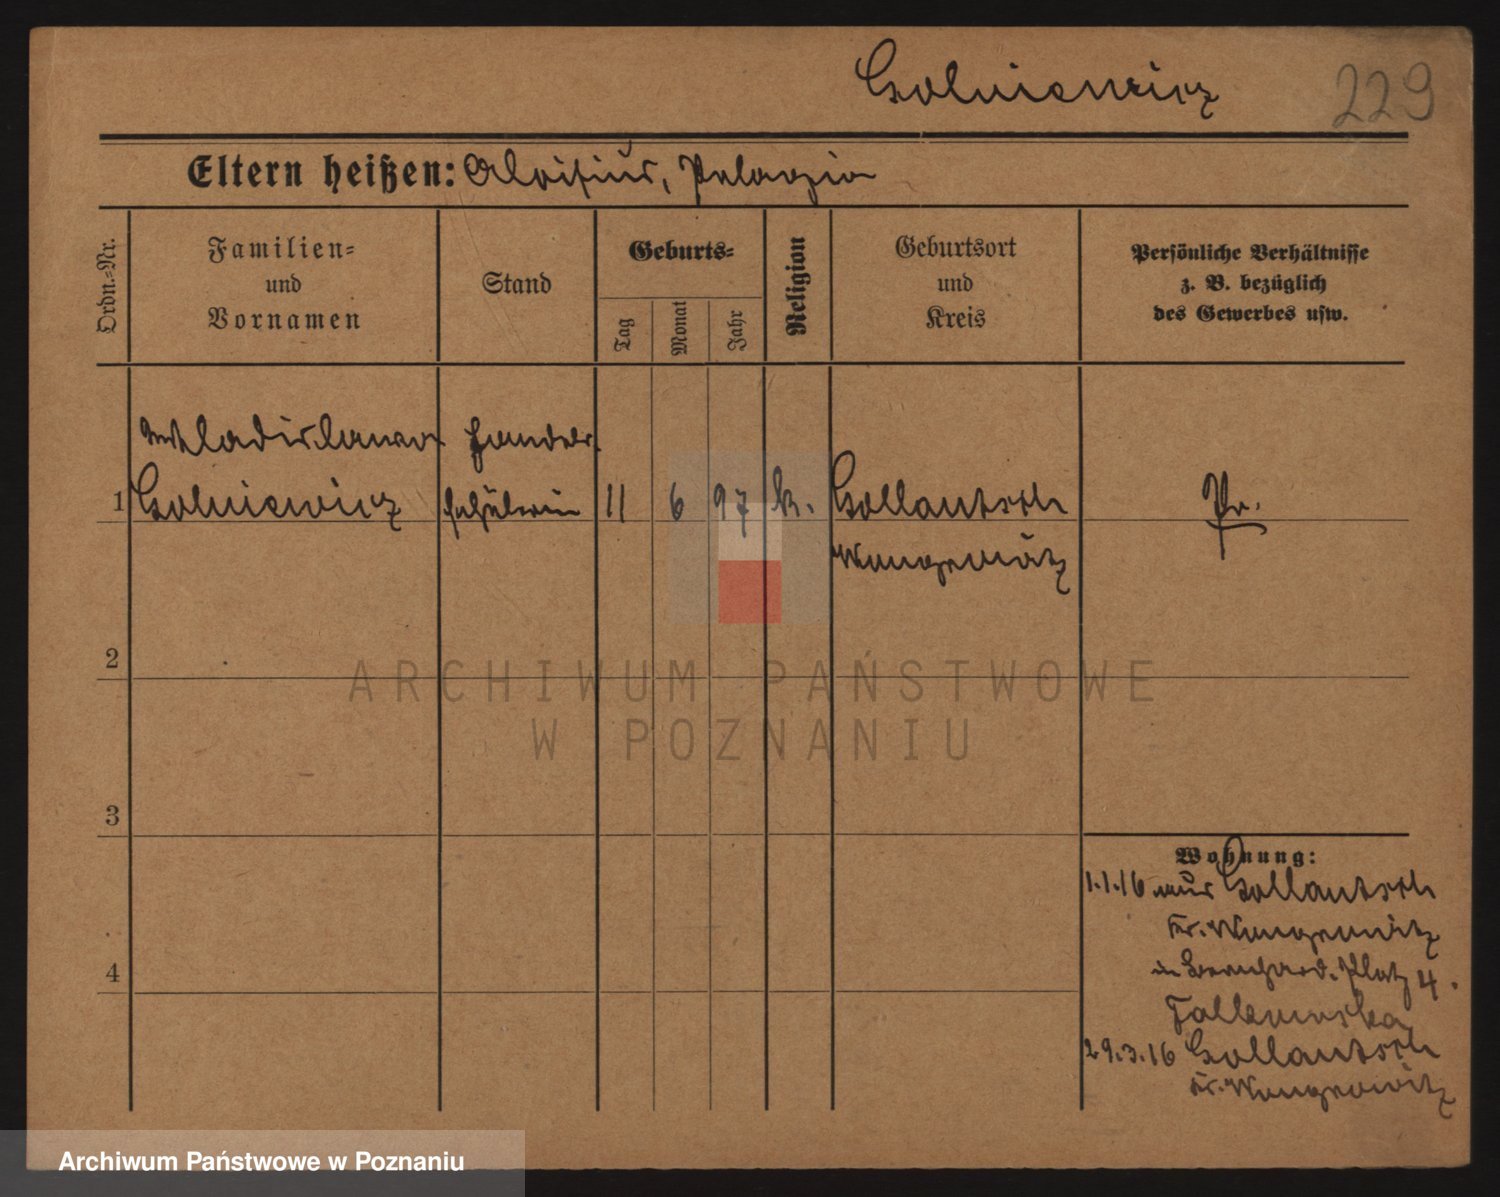 Golniewicz 229
Eltern heißen: Aloisius, Pelagia
Ordn.=Nr.
Familien=
und
Vornamen
Stand
Geburts=
Tag
Monat
Jahr
Religion
Geburtsort
und
Kreis
Persönliche Verhältnisse
z. B. bezüglich
des Gewerbes usw.
Wladislawa Handels
1 Golniewicz schülerin 11 6 97 k. Gollantsch Pr.
Wongrowitz
2
3
4
Wohnung:
1.1.16 aus Gollantsch
Kr. Wongrowitz
in Bernhard. Platz 4.
29.3.16 Gollantsch
Kr. Wongrowitz
ARCHIWUM PAŃSTWOWE
W POZNANIU
Archiwum Państwowe w Poznaniu